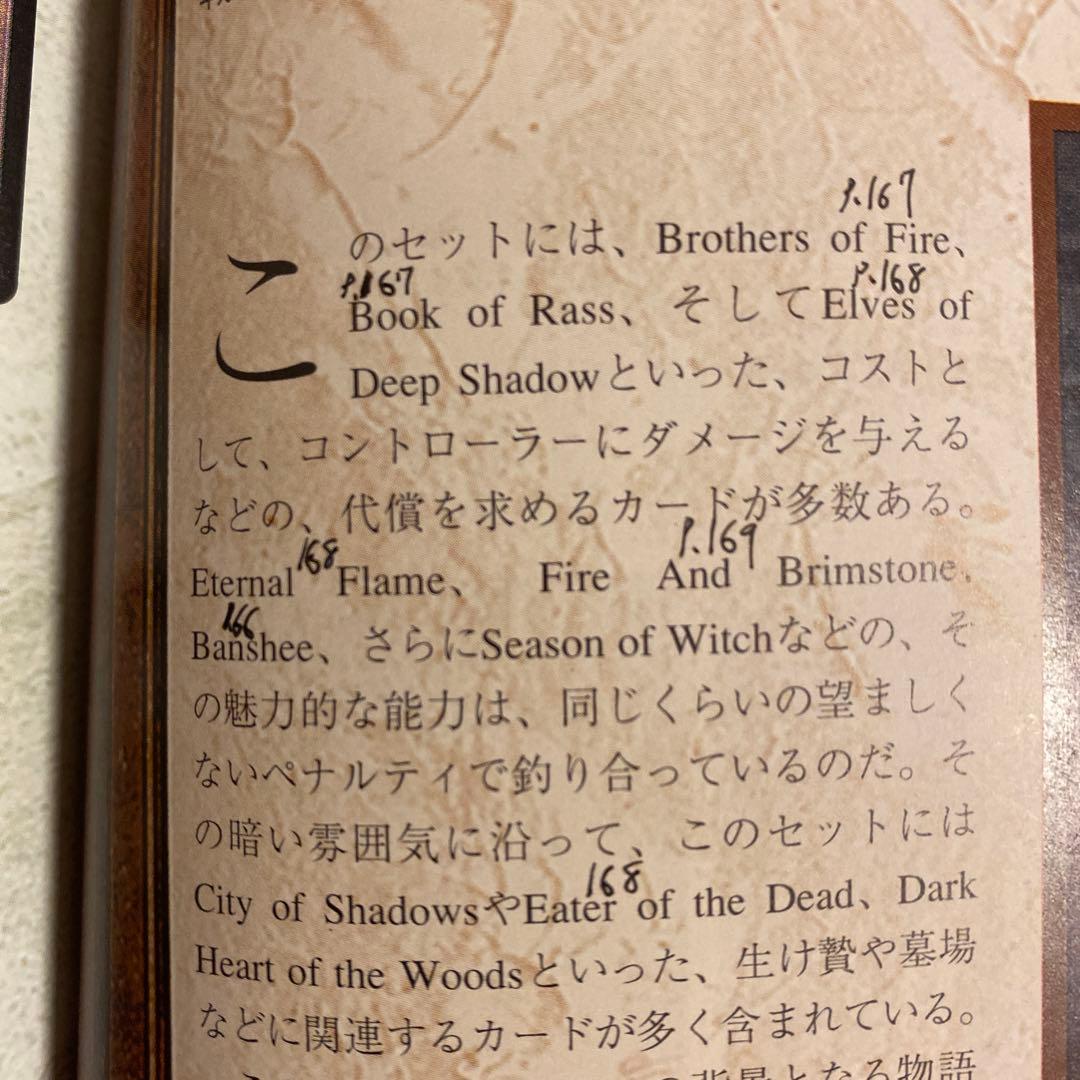 P.167
このセットには、Brothers of Fire、
P.167 P.168
Book of Rass、そしてElves of
Deep Shadowといった、コストと
して、コントローラーにダメージを与える
などの、代償を求めるカードが多数ある。
168 P.169
Eternal Flame、 Fire And Brimstone、
166
Banshee、さらにSeason of Witchなどの、そ
の魅力的な能力は、同じくらいの望ましく
ないペナルティで釣り合っているのだ。そ
の暗い雰囲気に沿って、このセットには
168
City of ShadowsやEater of the Dead、Dark
Heart of the Woodsといった、生け贄や墓場
などに関連するカードが多く含まれている。
の背景となる物語